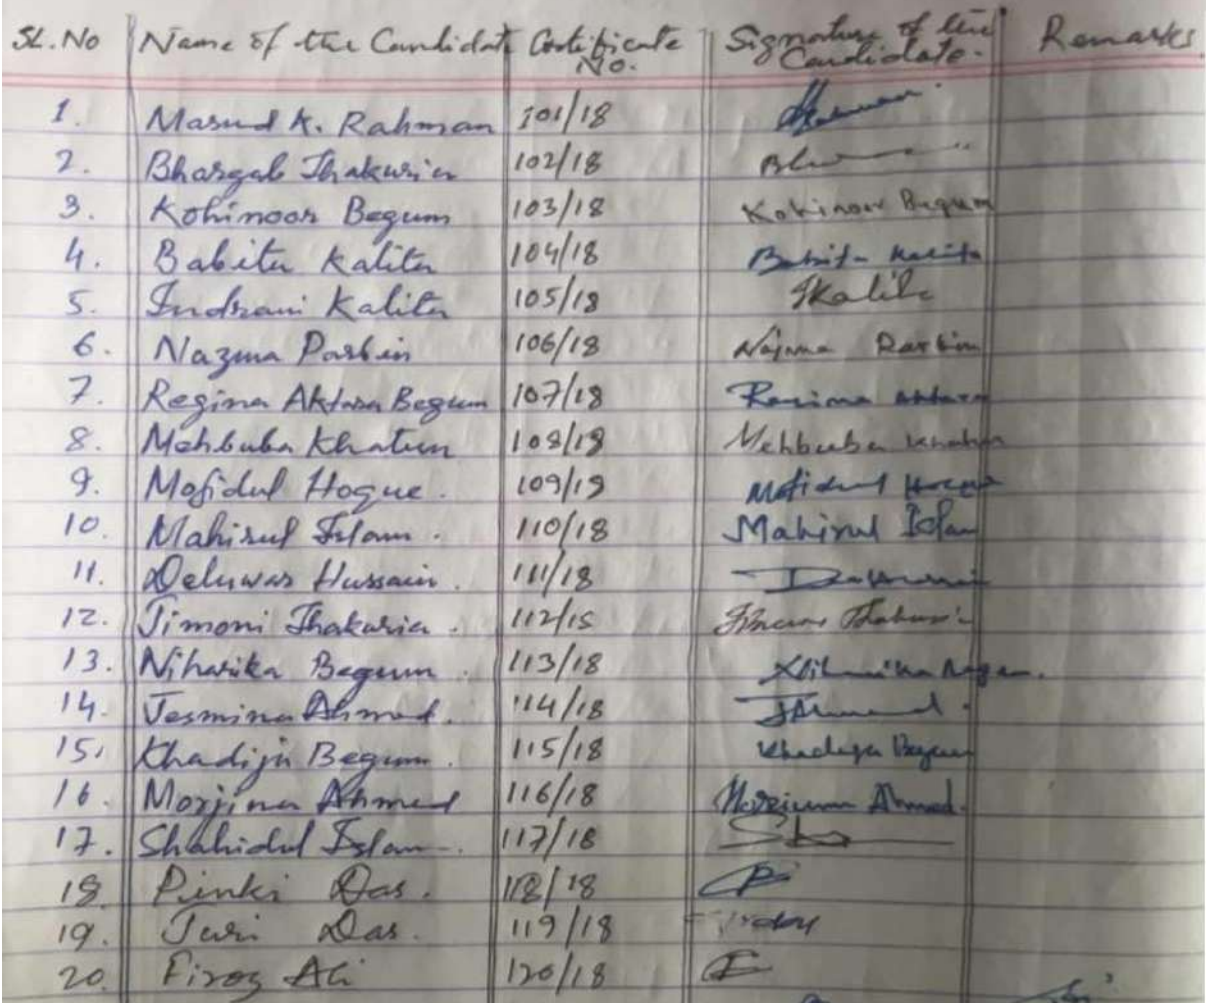 SL.No Name of the Candidate Certificate No. Signature of the Candidate. Remarks
1. Masud K. Rahman 101/18
2. Bhargab Thakuria 102/18
3. Kohinoor Begum 103/18 Kohinoor Begum
4. Babita Kalita 104/18 Babita Kalita
5. Indrani Kalita 105/18 IKalita
6. Nazma Parbin 106/18 Najma Parbin
7. Regina Aktara Begum 107/18 Aktara
8. Mehbuba Khatun 108/18 Mehbuba Khatun
9. Mofidul Hoque. 109/19 Mofidul Hoque
10. Mahirul Islam. 110/18 Mahirul Islam
11. Deluwar Hussain. 111/18
12. Jimoni Thakuria. 112/18
13. Niharika Begum. 113/18 Niharika Begum.
14. Jesmina Ahmed. 114/18 JAhmed.
15. Khadija Begum. 115/18 Khadija Begum
16. Morjina Ahmed 116/18 Ahmed.
17. Shahidul Islam. 117/18
18. Pinki Das. 118/18
19. Juri Das. 119/18
20. Firoz Ali 120/18